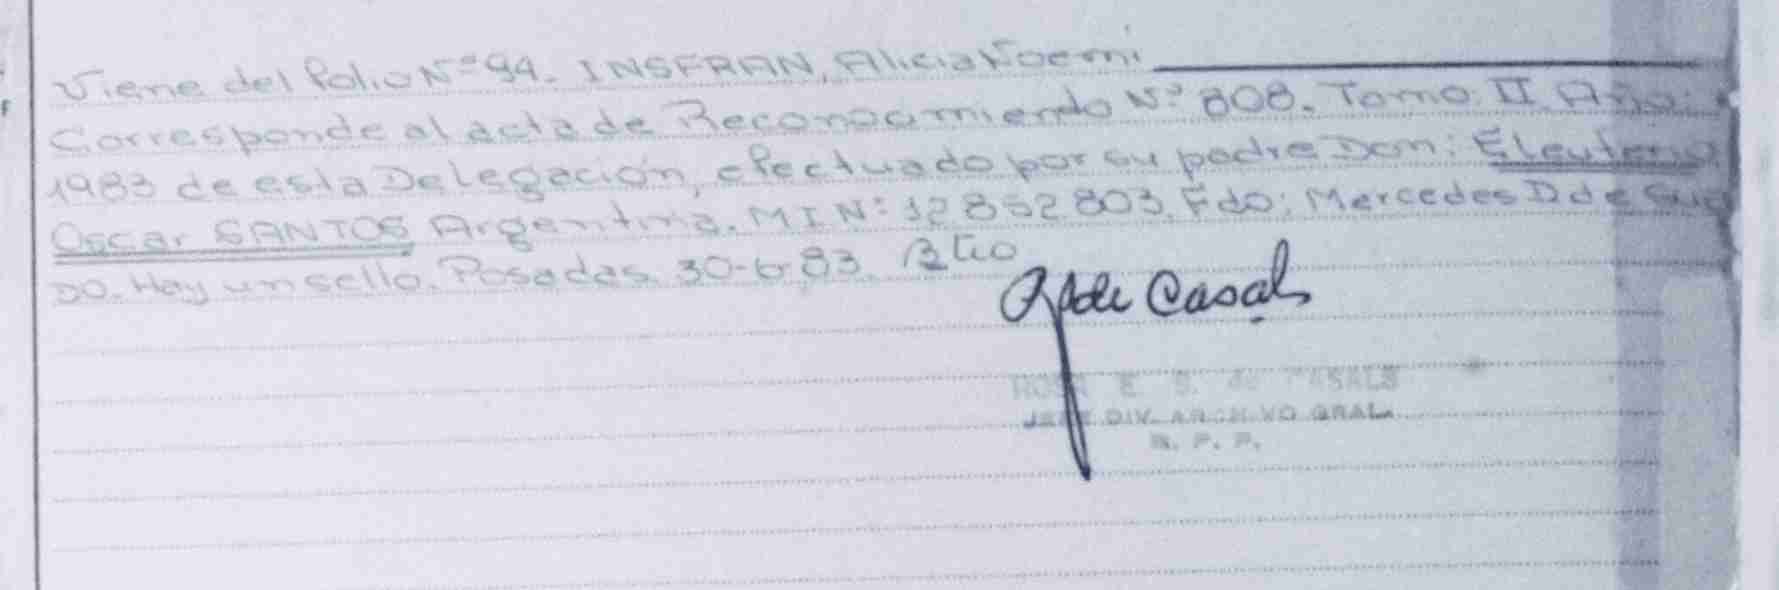 Viene del Folio Nº 94. INSFRAN, Alicia Noemi
Corresponde al acta de Reconocimiendo Nº 808. Tomo: II Año:
1983 de esta Delegación, efectuado por su padre Don: Eleuterio
Oscar SANTOS Argentina. M I N: 12852803. Fdo: Mercedes D de
DO. Hay un sello. Posadas. 30-6-83.
R de Casals
ROSA E. S. de CASALS
JEFE DIV. ARCHIVO GRAL.
R. P. P.